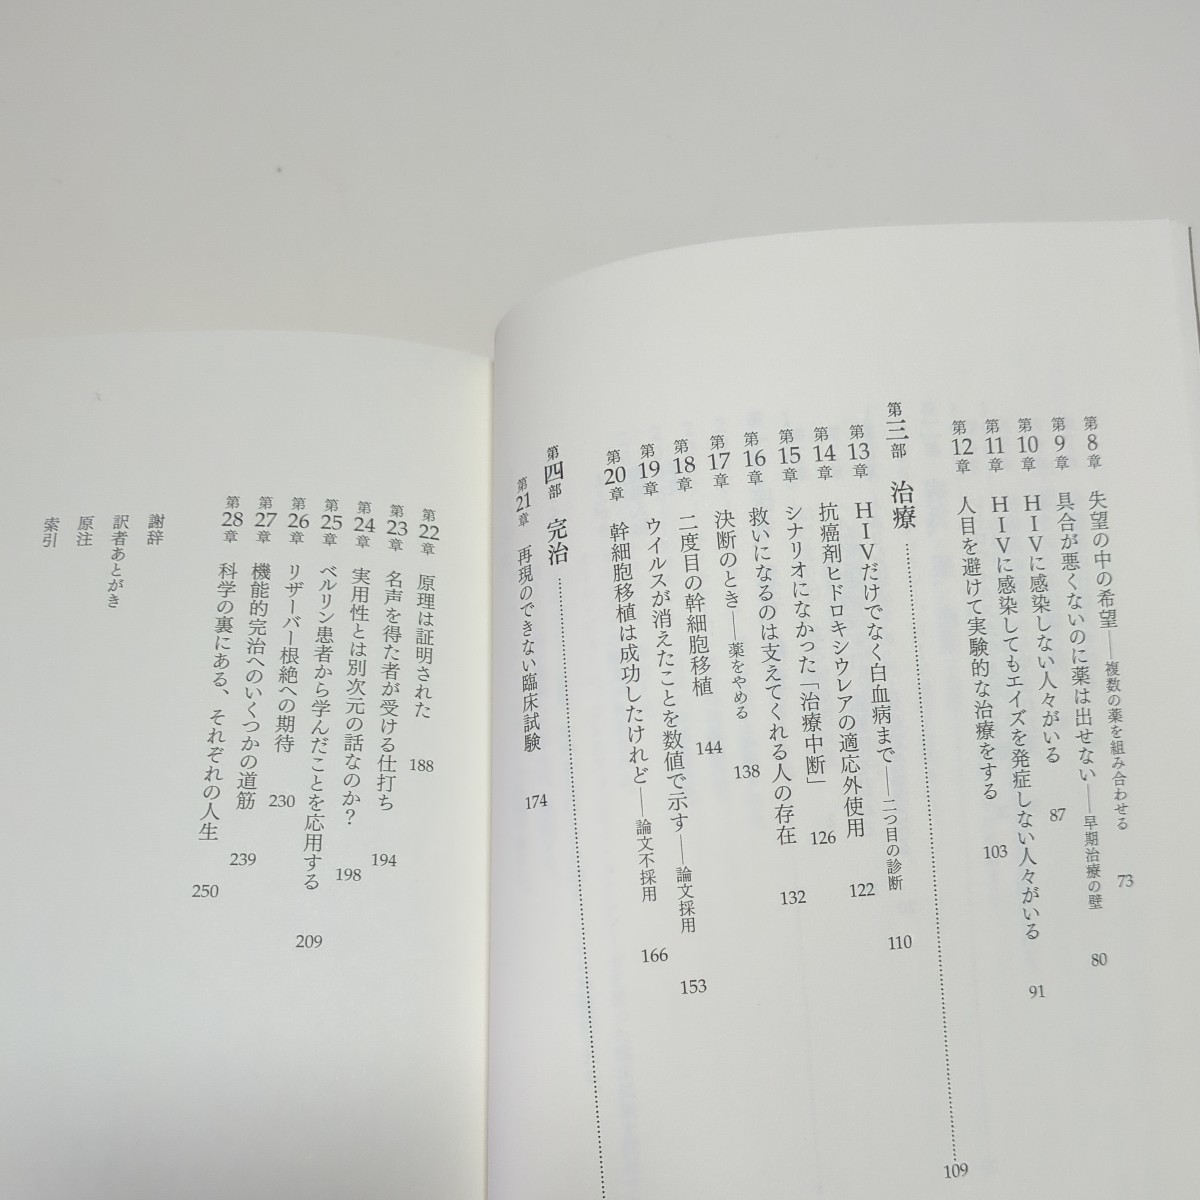 第8章 失望の中の希望――複数の薬を組み合わせる 73
第9章 具合が悪くないのに薬は出せない――早期治療の壁 80
第10章 HIVに感染しない人々がいる 87
第11章 HIVに感染してもエイズを発症しない人々がいる 91
第12章 人目を避けて実験的な治療をする 103
第三部 治療 109
第13章 HIVだけでなく白血病まで――二つ目の診断 110
第14章 抗癌剤ヒドロキシウレアの適応外使用 122
第15章 シナリオになかった「治療中断」 126
第16章 救いになるのは支えてくれる人の存在 132
第17章 決断のとき――薬をやめる 138
第18章 二度目の幹細胞移植 144
第19章 ウイルスが消えたことを数値で示す――論文採用 153
第20章 幹細胞移植は成功したけれど――論文不採用 166
第四部 完治
第21章 再現のできない臨床試験 174
第22章 原理は証明された 188
第23章 名声を得た者が受ける仕打ち 194
第24章 実用性とは別次元の話なのか？ 198
第25章 ベルリン患者から学んだことを応用する 209
第26章 リザーバー根絶への期待 230
第27章 機能的完治へのいくつかの道筋 239
第28章 科学の裏にある、それぞれの人生 250
謝辞
訳者あとがき
原注
索引